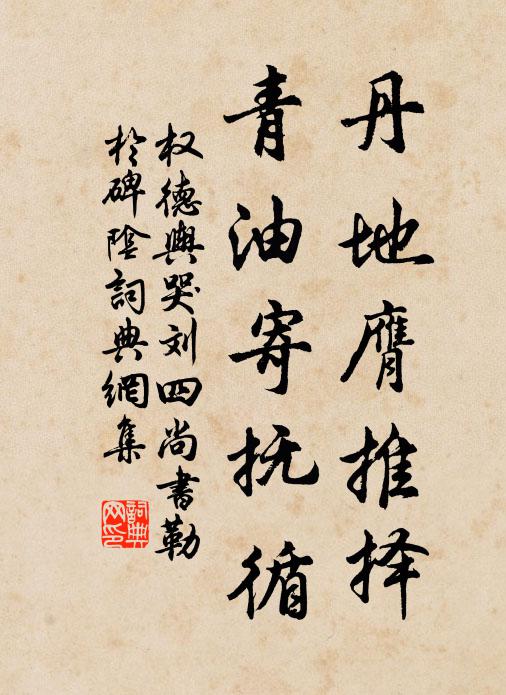 丹地膺推择
青油寄抚循
权德舆哭刘四尚书勒
於碑陰詞典網集
詞典
网印